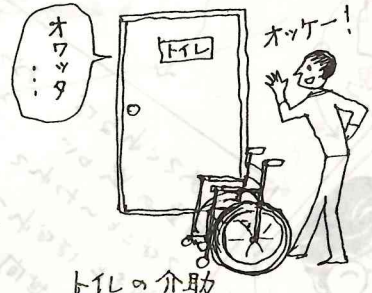 オワッタ…
トイレ
オッケー!
トイレの介助